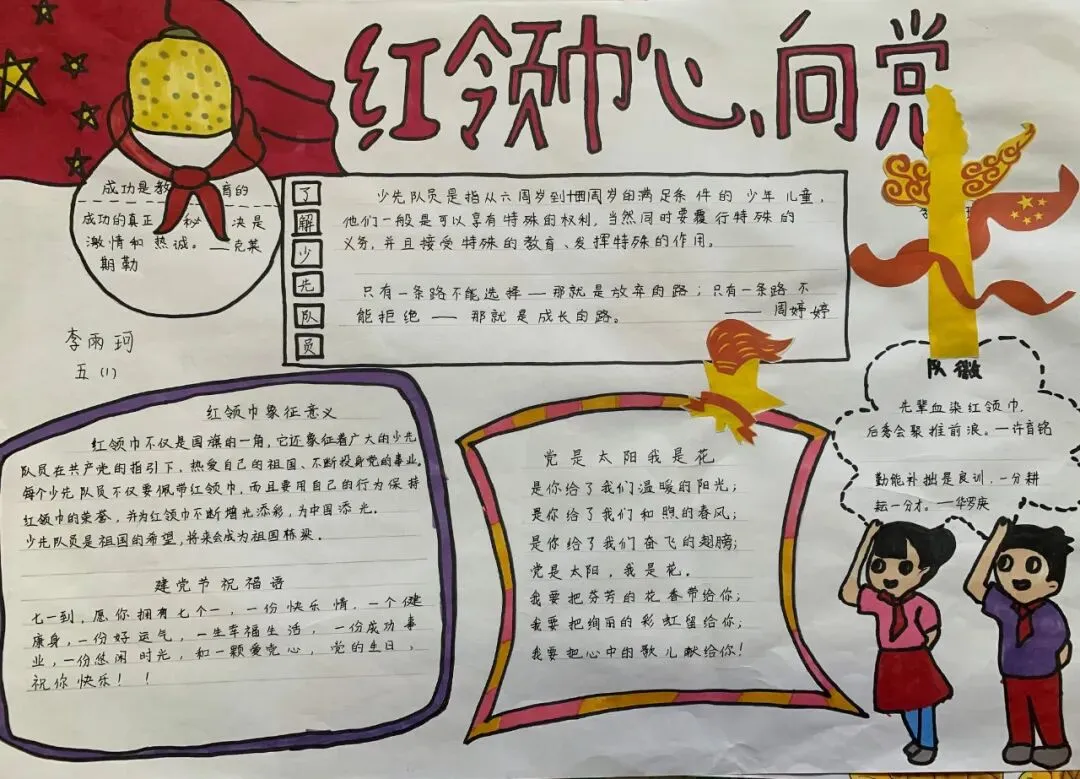 红领巾心、向党
成功是教 育的
成功的真正 秘 决是
激情和热诚。——克莱
斯勒
李雨珂
五(1)
了解少先队员
少先队员是指从六周岁到十四周岁的满足条件的少年儿童,
他们一般是可以享有特殊的权利,当然同时要履行特殊的
义务,并且接受特殊的教育、发挥特殊的作用。
只有一条路不能选择——那就是放弃的路;只有一条路不
能拒绝——那就是成长的路。 ——周婷婷
队徽
先辈血染红领巾,
后秀会聚推前浪。——许育铭
勤能补拙是良训,一分耕
耘一分才。——华罗庚
红领巾象征意义
红领巾不仅是国旗的一角,它还象征着广大的少先
队员在共产党的指引下,热爱自己的祖国、不断投身党的事业。
每个少先队员不仅要佩带红领巾,而且要用自己的行为保持
红领巾的荣誉,并为红领巾不断增光添彩,为中国添光。
少先队员是祖国的希望,将来会成为祖国栋梁。
建党节祝福语
七一到,愿你拥有七个一,一份快乐情,一个健
康身,一份好运气,一生幸福生活,一份成功事
业,一份悠闲时光,和一颗爱党心,党的生日,
祝你快乐!!
党是太阳我是花
是你给了我们温暖的阳光;
是你给了我们和煦的春风;
是你给了我们奋飞的翅膀;
党是太阳,我是花。
我要把芬芳的花香带给你;
我要把绚丽的彩虹留给你;
我要把心中的歌儿献给你!